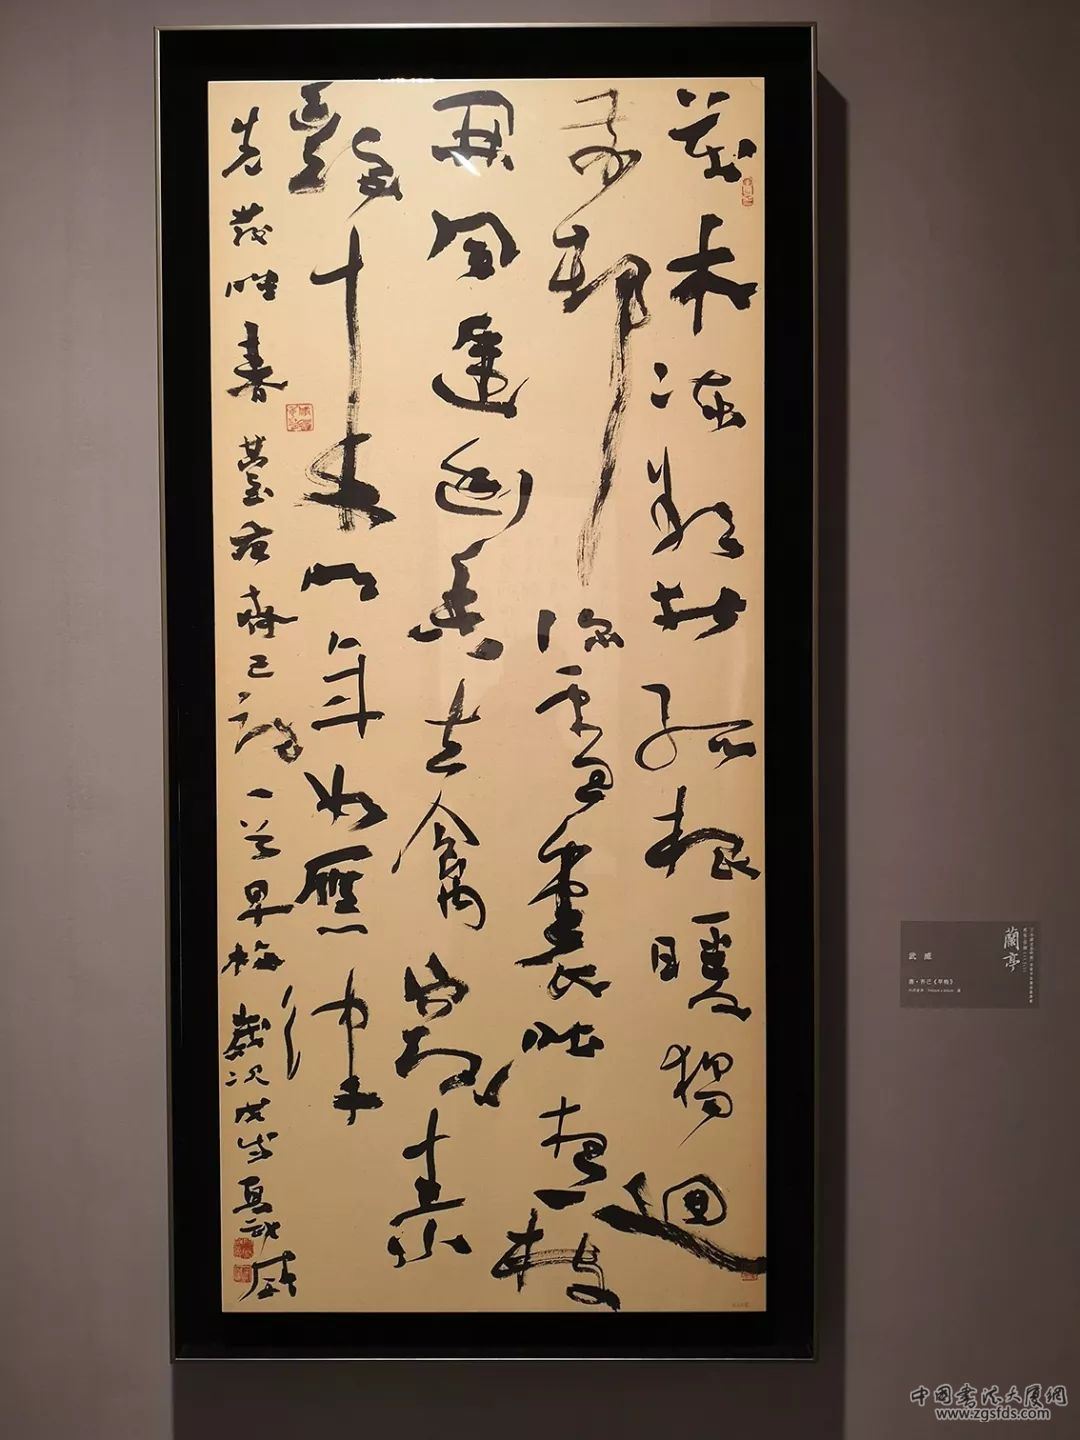 萬木凍欲折孤根暖獨迴
前邨深雪裏昨夜一枝
開風遞幽香去禽窺素
豔來明年如應律
先發映春臺 右齊己詩一首早梅 歲次戊戌夏武威
蘭亭
武 威
唐·齐己《早梅》
中國書法大厦網
www.zgsfds.com